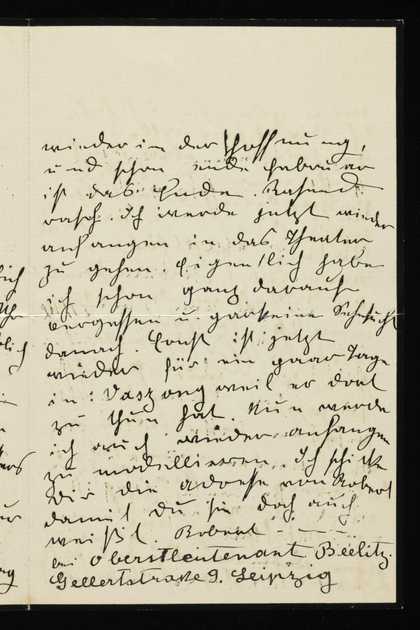 wieder in der Hoffnung,
und schon Ende Februar
ist das Ende. Rasend
rasch. Ich werde jetzt wieder
anfangen in das Theater
zu gehen. Eigentlich habe
ich schon ganz darauf
vergessen u. gar keine Sehnsucht
danach. Ernst ist jetzt
wieder für ein paar Tage
in weil er dort
zu thun hat. Nun werde
ich auch wieder anfangen
zu modellieren. Ich schicke
Dir die Adresse von Robert
damit Du sie doch auch
weißt. Robert
bei Oberstleutenant Beelitz.
Gellertstraße 9. Leipzig